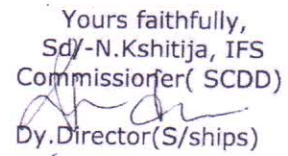 Yours faithfully,
Sd/-N.Kshitija, IFS
Commissioner( SCDD)
Dy.Director(S/ships)